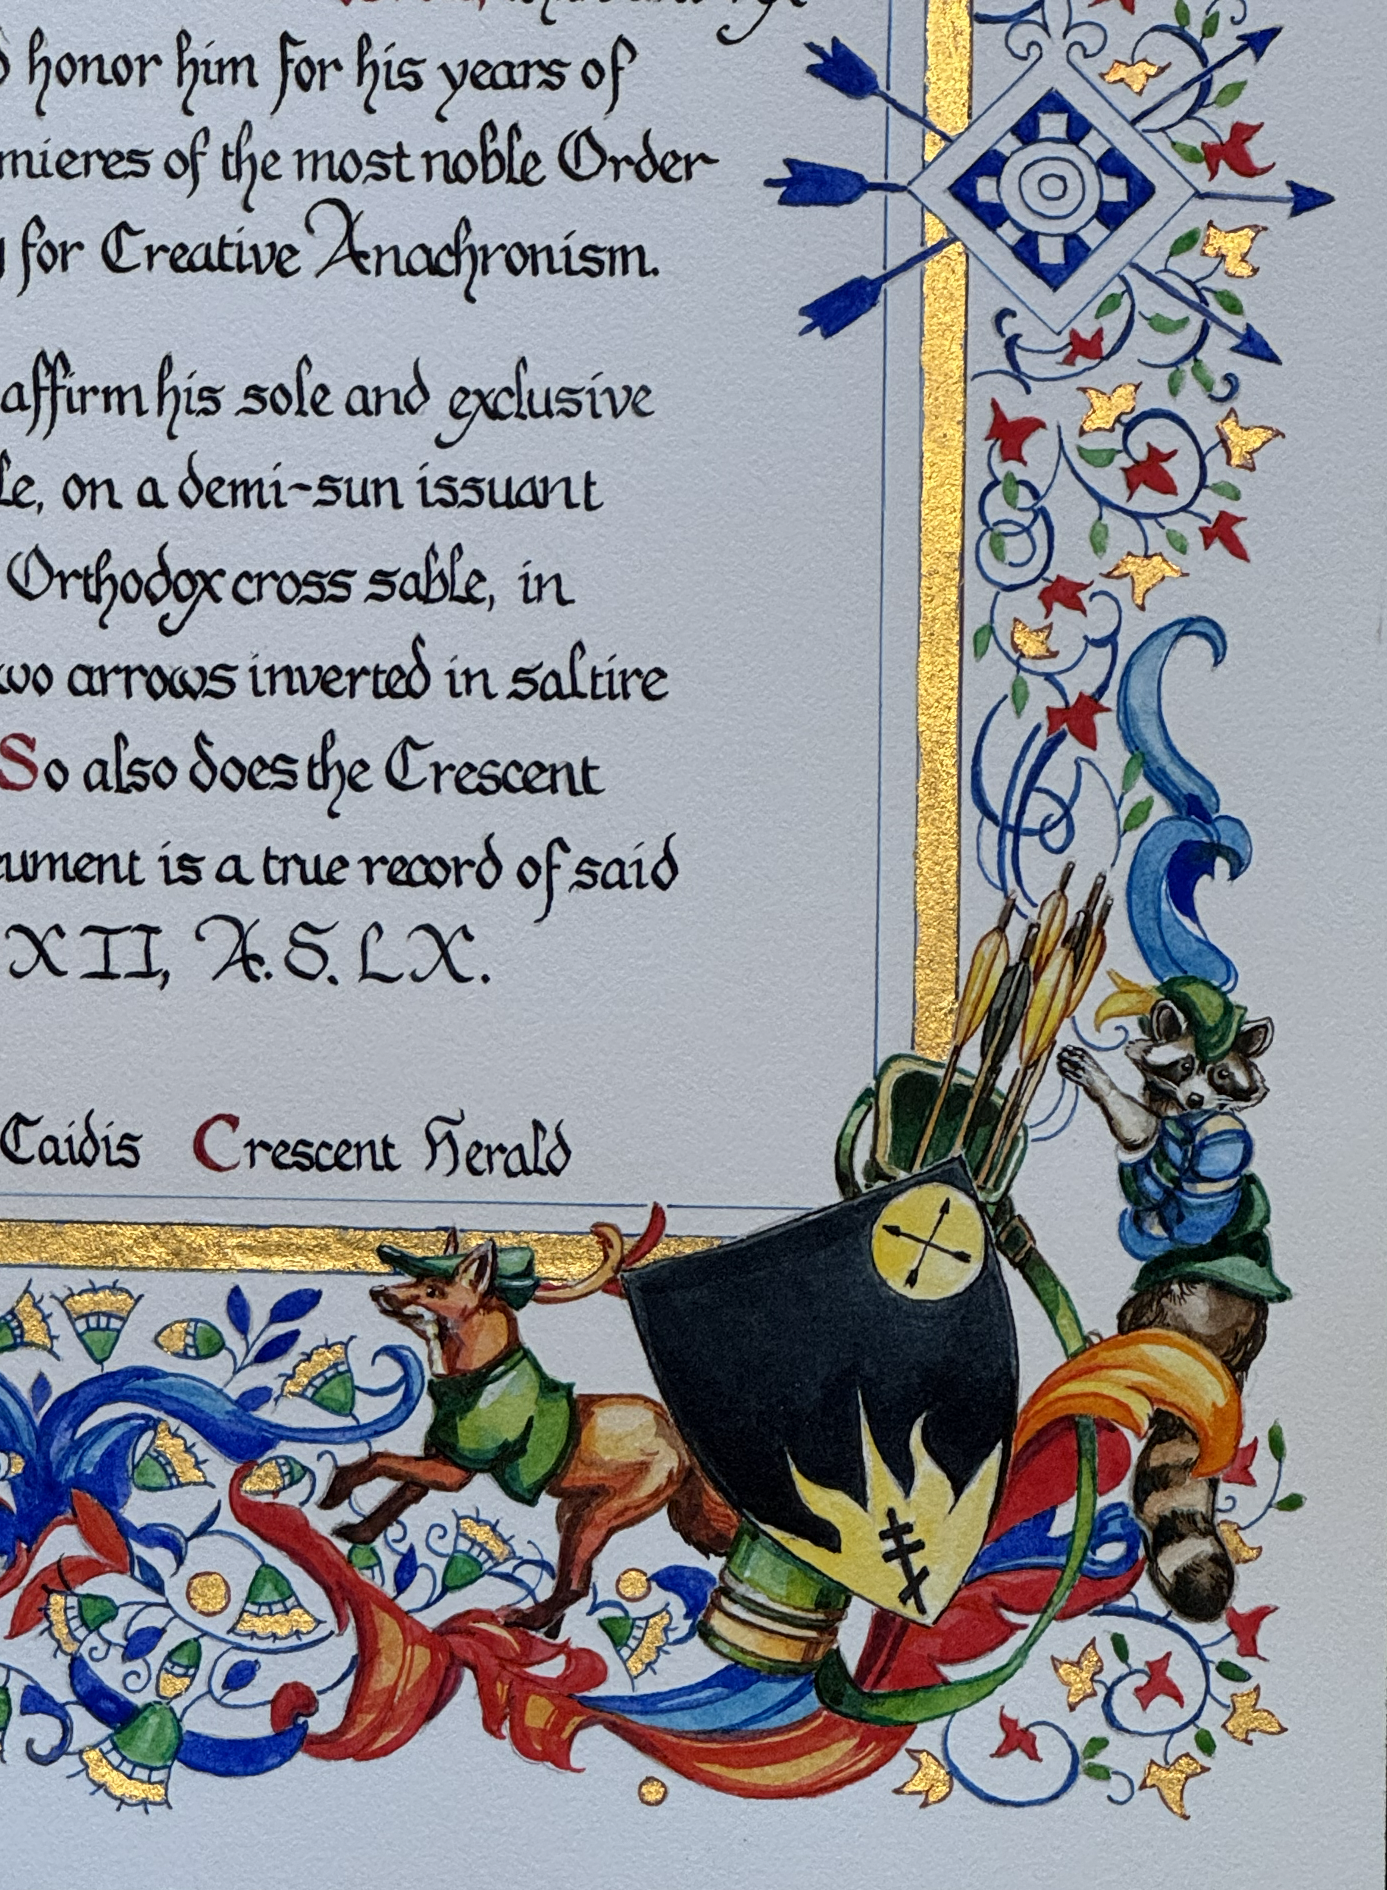 honor him for his years of
mieres of the most noble Order
for Creative Anachronism.
affirm his sole and exclusive
le, on a demi-sun issuant
Orthodox cross sable, in
wo arrows inverted in saltire
So also does the Crescent
cument is a true record of said
XII, A.S. LX.
Caidis Crescent Herald